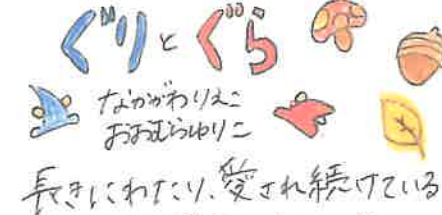 ぐりとぐら
なかがわりえこ
おおむらゆりこ
長きにわたり、愛され続けている